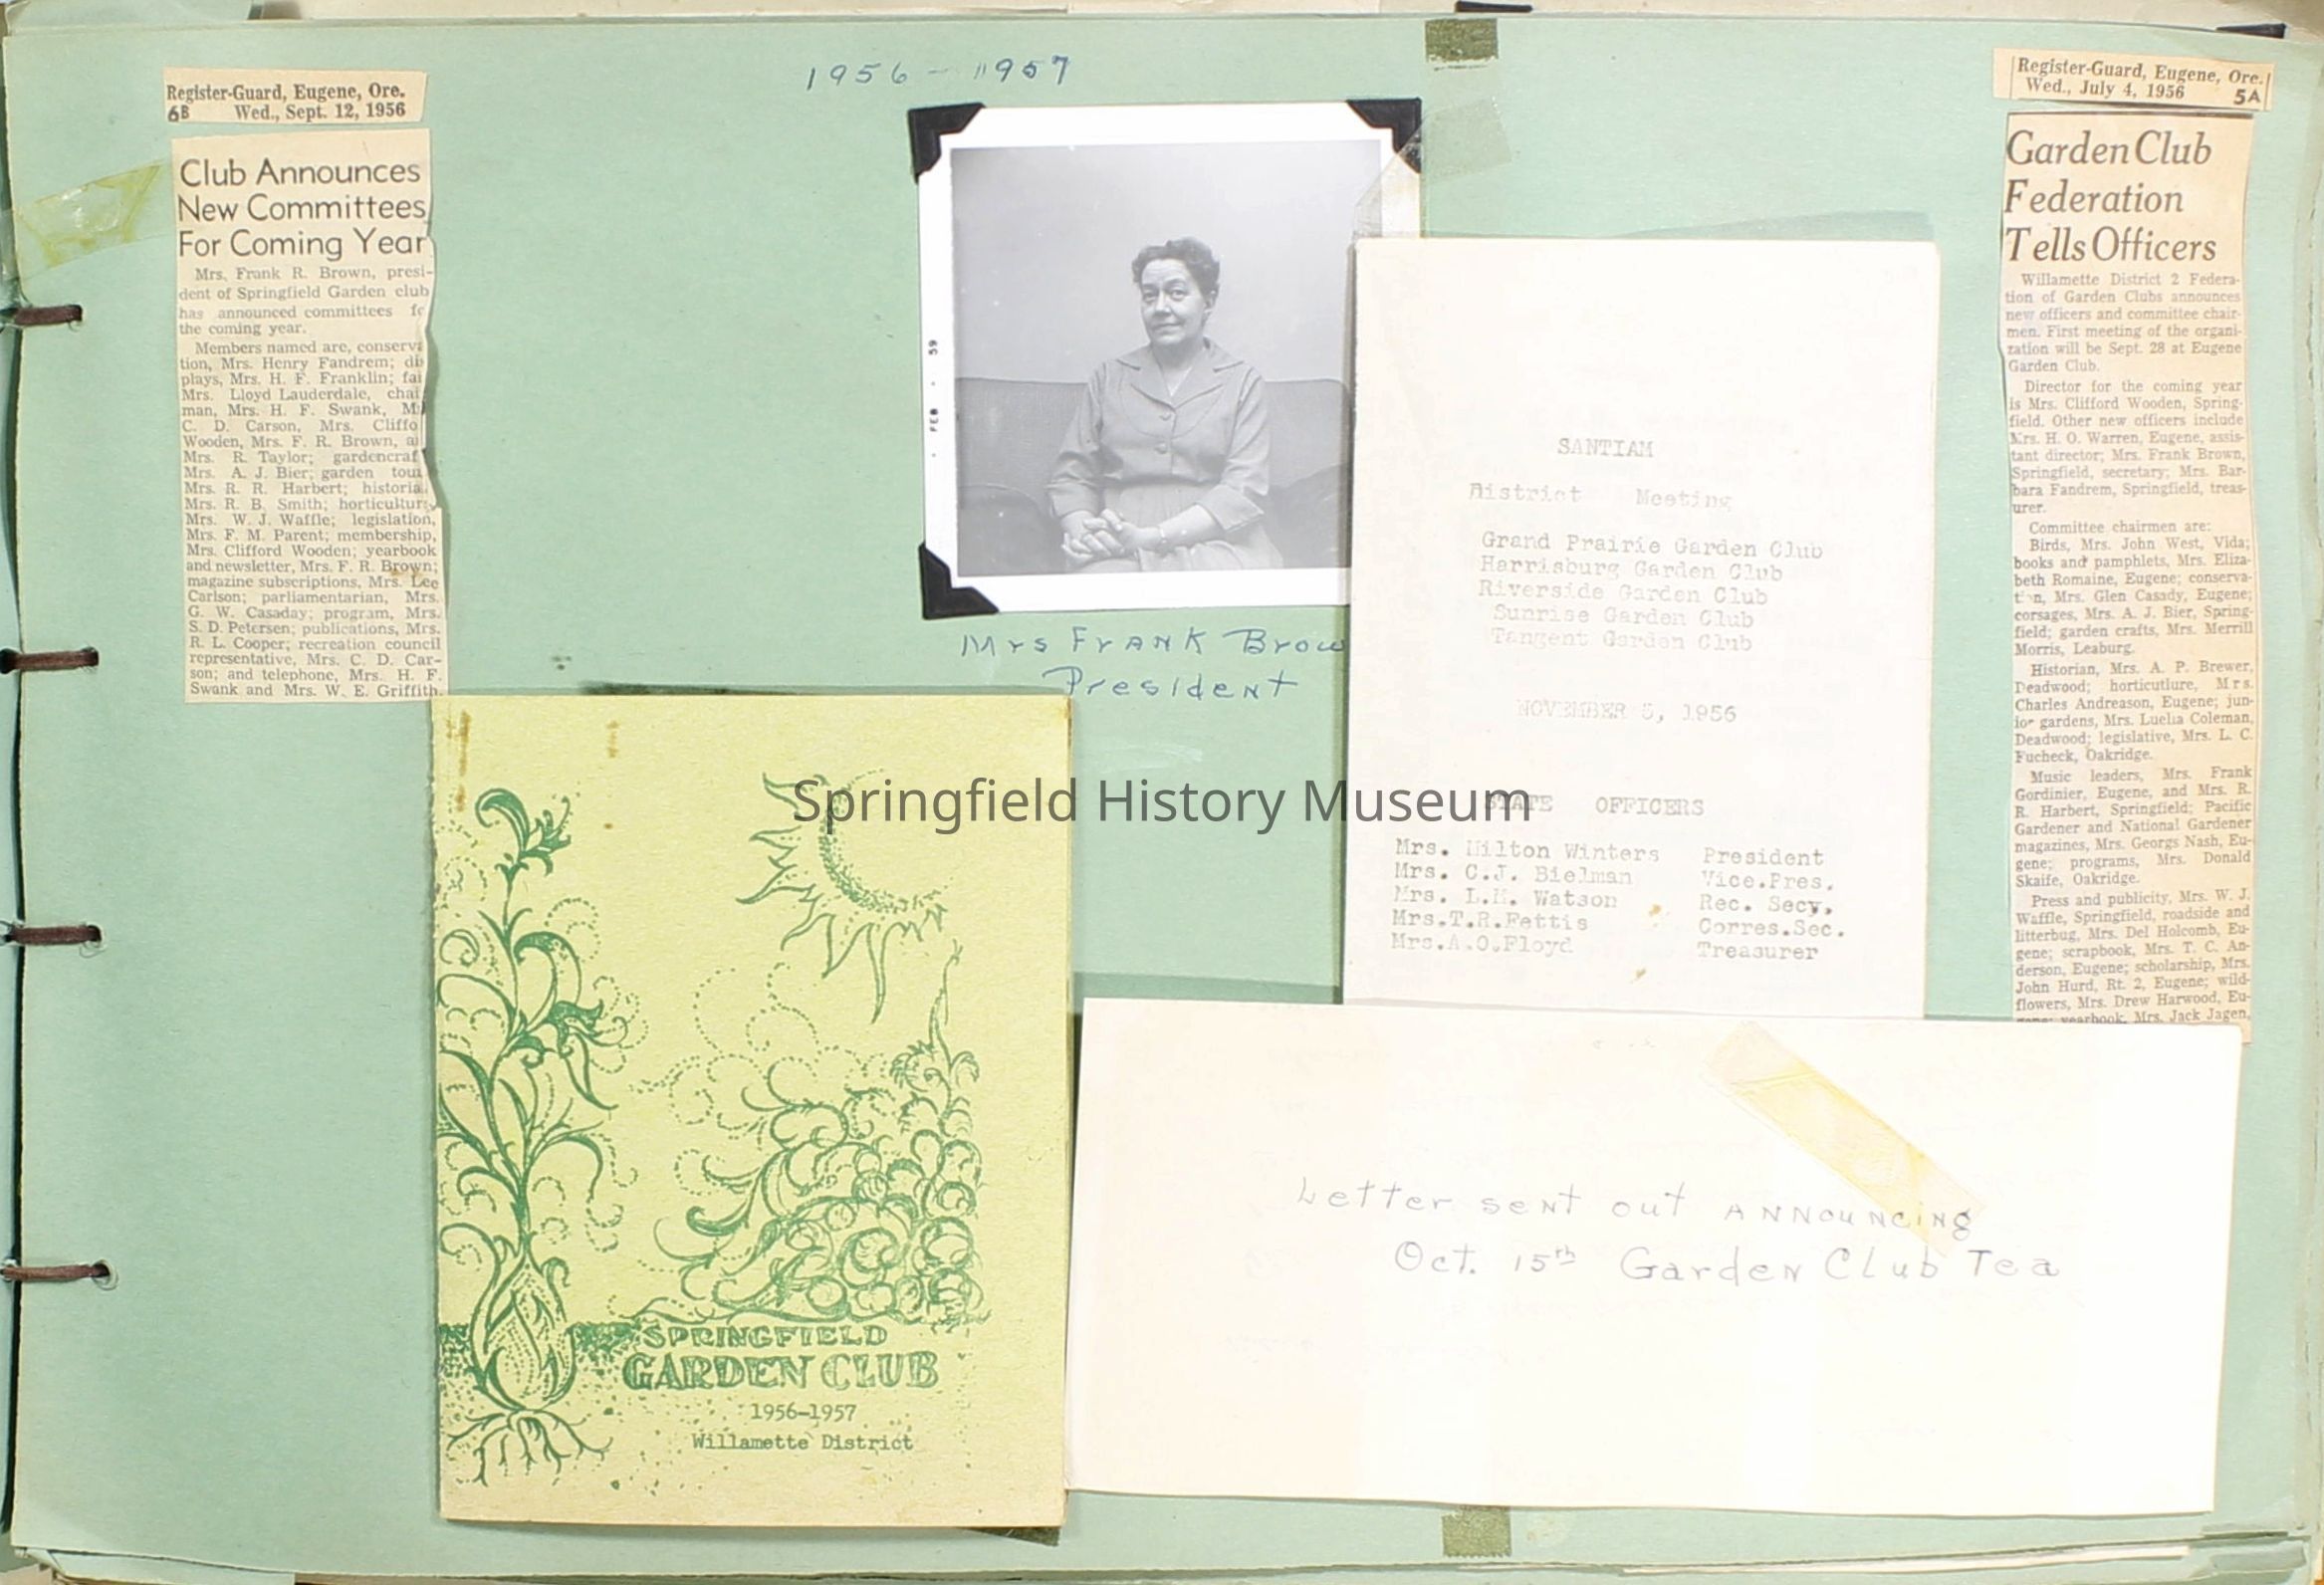 1956-1957
Register-Guard, Eugene, Ore.
6B Wed., Sept. 12, 1956
Club Announces
New Committees
For Coming Year
Mrs. Frank R. Brown, presi-
dent of Springfield Garden club
has announced committees
the coming year.
Members named are, conserva
tion, Mrs. Henry Fandrem; dis
plays, Mrs. H. F. Franklin; fai
Mrs. Lloyd Lauderdale, chai
man, Mrs. H. F. Swank, M
C. D. Carson, Mrs. Cliffo
Wooden, Mrs. F. R. Brown, a
Mrs. R. Taylor; gardencraf
Mrs. A. J. Bier; garden tour
Mrs. R. R. Harbert; historia
Mrs. R. B. Smith; horticultur
Mrs. W. J. Waffle; legislation,
Mrs. F. M. Parent; membership,
Mrs. Clifford Wooden; yearbook
and newsletter, Mrs. F. R. Brown;
magazine subscriptions, Mrs. Lee
Carlson; parliamentarian, Mrs.
G. W. Casaday; program, Mrs.
S. D. Petersen; publications, Mrs.
R. L. Cooper; recreation council
representative, Mrs. C. D. Car-
son; and telephone, Mrs. H. F.
Swank and Mrs. W. E. Griffith.
FEB . 59
Mrs Frank Brow
President
SPRINGFIELD
GARDEN CLUB
1956-1957
Willamette District
SANTIAM
District Meeting
Grand Prairie Garden Club
Harrisburg Garden Club
Riverside Garden Club
Sunrise Garden Club
Tangent Garden Club
NOVEMBER 5, 1956
STATE OFFICERS
Mrs. Milton Winters President
Mrs. C.J. Bielman Vice.Pres.
Mrs. L.M. Watson Rec. Secy.
Mrs.T.R.Fettis Corres.Sec.
Mrs.A.O.Floyd Treasurer
Letter sent out Announcing
Oct. 15th Garden Club Tea
Register-Guard, Eugene, Ore.
Wed., July 4, 1956 5A
Garden Club
Federation
Tells Officers
Willamette District 2 Federa-
tion of Garden Clubs announces
new officers and committee chair-
men. First meeting of the organi-
zation will be Sept. 28 at Eugene
Garden Club.
Director for the coming year
is Mrs. Clifford Wooden, Spring-
field. Other new officers include
Mrs. H. O. Warren, Eugene, assis-
tant director; Mrs. Frank Brown,
Springfield, secretary; Mrs. Bar-
bara Fandrem, Springfield, treas-
urer.
Committee chairmen are:
Birds, Mrs. John West, Vida;
books and pamphlets, Mrs. Eliza-
beth Romaine, Eugene; conserva-
tion, Mrs. Glen Casady, Eugene;
corsages, Mrs. A. J. Bier, Spring-
field; garden crafts, Mrs. Merrill
Morris, Leaburg.
Historian, Mrs. A. P. Brewer,
Deadwood; horticutlure, Mrs.
Charles Andreason, Eugene; jun-
ior gardens, Mrs. Luella Coleman,
Deadwood; legislative, Mrs. L. C.
Fucheck, Oakridge.
Music leaders, Mrs. Frank
Gordinier, Eugene, and Mrs. R.
R. Harbert, Springfield; Pacific
Gardener and National Gardener
magazines, Mrs. Georgs Nash, Eu-
gene; programs, Mrs. Donald
Skaife, Oakridge.
Press and publicity, Mrs. W. J.
Waffle, Springfield, roadside and
litterbug, Mrs. Del Holcomb, Eu-
gene; scrapbook, Mrs. T. C. An-
derson, Eugene; scholarship, Mrs.
John Hurd, Rt. 2, Eugene; wild-
flowers, Mrs. Drew Harwood, Eu-
gene; yearbook, Mrs. Jack Jagen,
Springfield History Museum